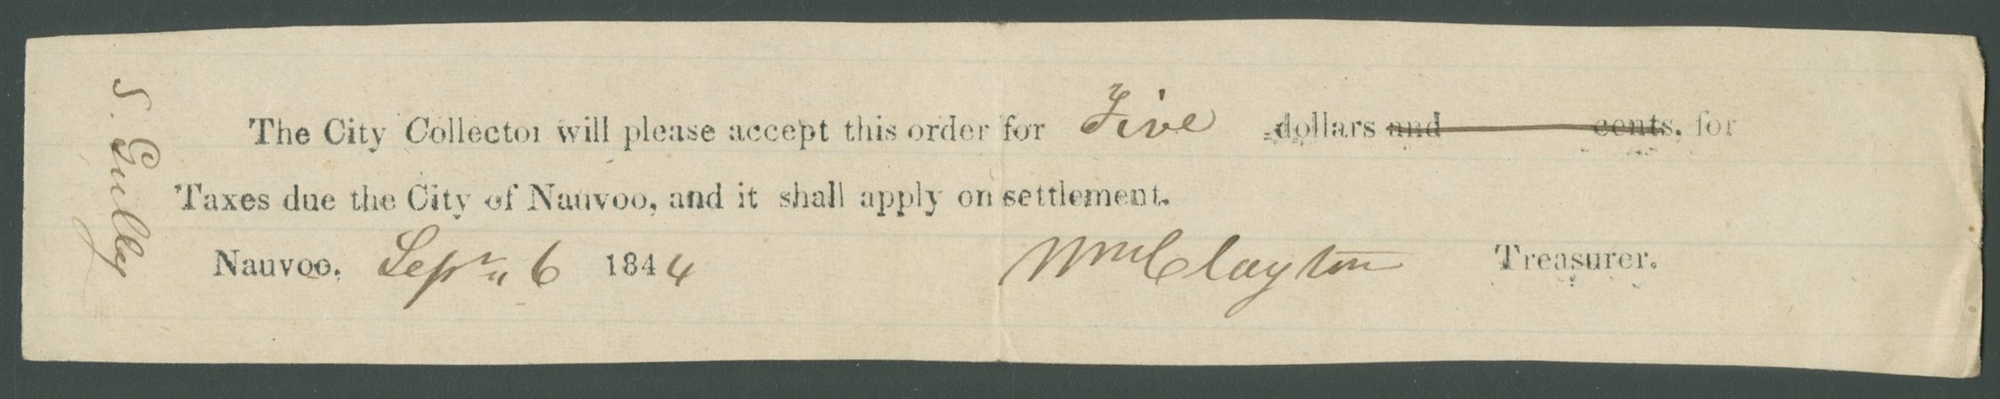 S. Gulley
The City Collector will please accept this order for Five dollars and cents, for
Taxes due the City of Nauvoo, and it shall apply on settlement.
Nauvoo, Sepr. 6 1844 Wm Clayton Treasurer.